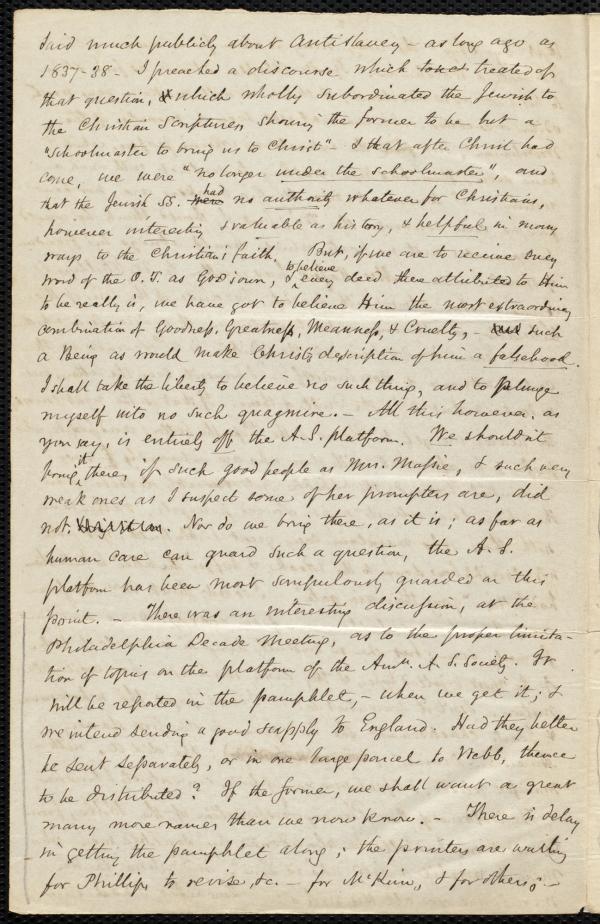 said much publicly about Antislavery – as long ago as
1837-38 – I preached a discourse which treated of
that question, & which wholly subordinated the Jewish to
the Christian Scriptures, showing the former to be but a
"schoolmaster to bring us to Christ" – & that after Christ had
come, we were "no longer under the schoolmaster", and
that the Jewish SS. were had no authority whatever for Christians,
however interesting & valuable as history, & helpful in many
ways to the Christian's faith. But, if we are to receive every
word of the O.T. as God's own, & to believe every deed there attributed to Him
to be really is, we have got to believe Him the most extraordinary
combination of Goodness, Greatness, Meanness, & Cruelty, – such
a Being as would make Christ's description of him a falsehood.
I shall take the liberty to believe no such thing, and to plunge
myself into no such quagmire. – All this however, as
you say, is entirely off the A.S. platform. We shouldn't
bring it there, if such good people as Mrs. Massie, & such very
weak ones as I suspect some of her prompters are, did
not. Nor do we bring there, as it is; as far as
human care can guard such a question, the A.S.
platform has been most scrupulously guarded on this
point. – There was an interesting discussion, at the
Philadelphia Decade Meeting, as to the proper limita-
tion of topics on the platform of the Amn. A.S. Society. It
will be reported in the pamphlet, – when we get it; &
we intend sending a good supply to England. Had they better
be sent separately, or in one large parcel to Webb, thence
to be distributed? If the former, we shall want a great
many more names than we now know. – There is delay
in getting the pamphlet along; the printers are waiting
for Phillips to revise, &c. – for McKim, & for others; –